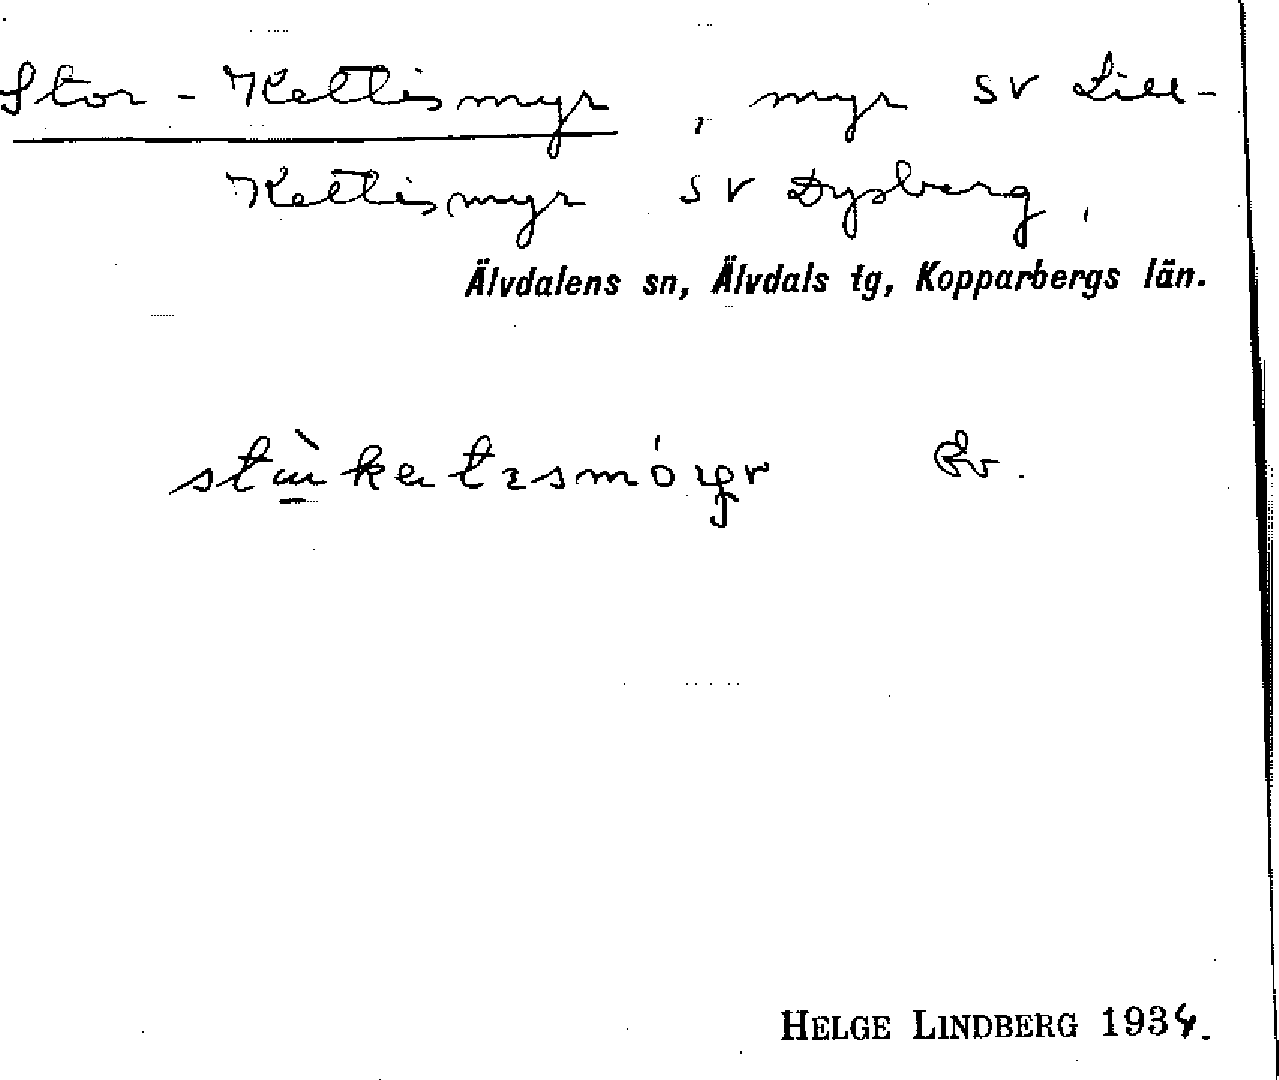 Stor-Kettismyr, myr SV Lill-
Kettismyr SV Dysberg.
Älvdalens sn, Älvdals tg, Kopparbergs län.
Ev.
HELGE LINDBERG 1934.